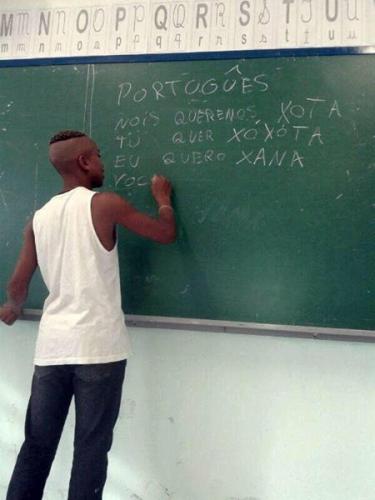 M m N n O o P p Q q R r S s T t U u
m m n n o o p p q q r r s s t t u u
PORTUGUÊS
NOIS QUEREMOS XOTA
TU QUER XOXÓTA
EU QUERO XANA
VOC